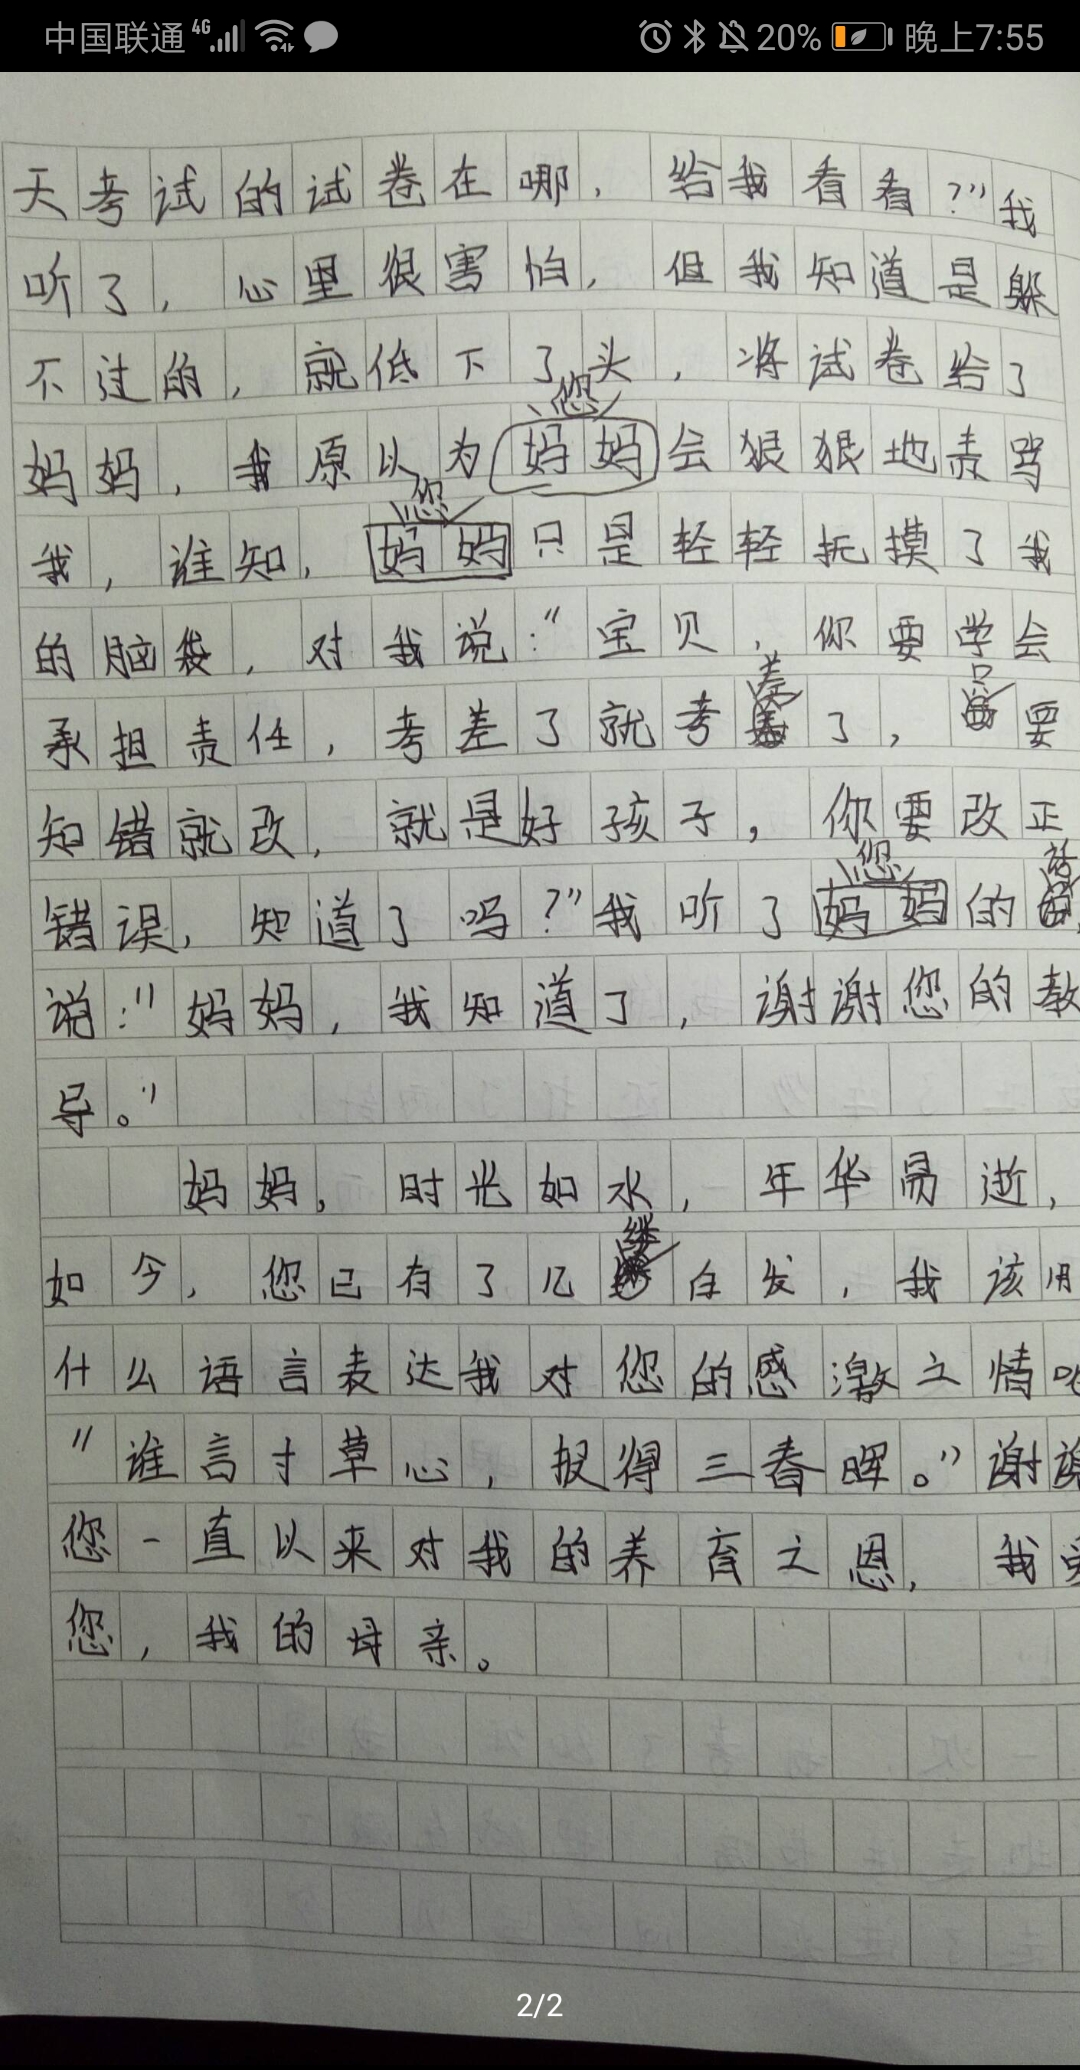 中国联通 4G 20% 晚上7:55
天考试的试卷在哪，给我看看？”我
听了，心里很害怕，但我知道是躲
不过的，就低下了头，将试卷给了
您
妈妈，我原以为妈妈会狠狠地责骂
您
我，谁知，妈妈只是轻轻抚摸了我
的脑袋，对我说：“宝贝，你要学会
差 只
承担责任，考差了就考了，要
知错就改，就是好孩子，你要改正
您 话
错误，知道了吗？”我听了妈妈的
说：“妈妈，我知道了，谢谢您的教
导。”
妈妈，时光如水，年华易逝，
缕
如今，您已有了几白发，我该用
什么语言表达我对您的感激之情呢
“谁言寸草心，报得三春晖。”谢谢
您一直以来对我的养育之恩，我爱
您，我的母亲。
2/2